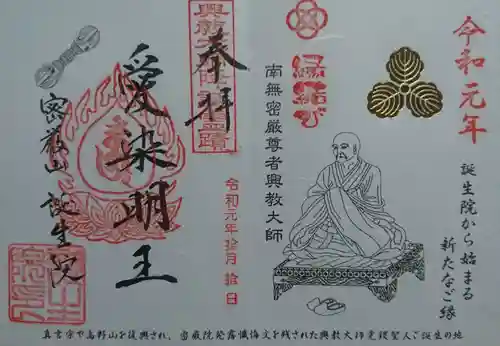 令和元年
誕生院から始まる
新たなご縁
縁結び
南無密厳尊者興教大師
奉拝
令和元年拾月拾日
愛染明王
密厳山誕生院
真言宗や高野山を復興され、密厳院発露懺悔文を残された興教大師覚鑁聖人ご誕生の地